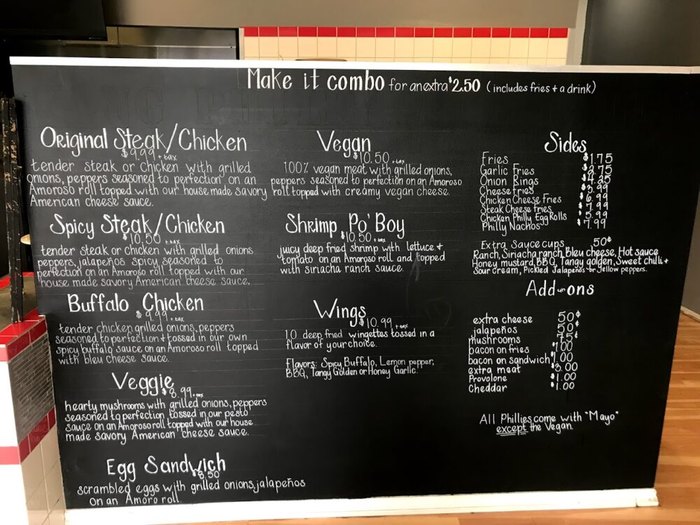 Make it combo for an extra $2.50 (includes fries + a drink)
Original Steak/Chicken
$9.99 + tax
tender steak or chicken with grilled
onions, peppers seasoned to perfection on an
Amoroso roll topped with our house made savory
American cheese sauce.
Spicy Steak/Chicken
$10.50 + tax
tender steak or chicken with grilled onions
peppers, jalapeños spicy seasoned to
perfection on an Amoroso roll topped with our
house made savory American cheese sauce.
Buffalo Chicken
$9.99 + tax
tender chicken, grilled onions, peppers
seasoned to perfection + tossed in our own
spicy buffalo sauce on an Amoroso roll topped
with bleu cheese sauce.
Veggie
$8.99 + tax
hearty mushrooms with grilled onions, peppers
seasoned to perfection tossed in our pesto
sauce on an Amoroso roll topped with our house
made savory American cheese sauce.
Egg Sandwich
$8.50
scrambled eggs with grilled onions, jalapeños
on an Amoro roll
Vegan
$10.50 + tax
100% vegan meat with grilled onions,
peppers seasoned to perfection on an Amoroso
roll topped with creamy vegan cheese.
Shrimp Po' Boy
$10.50 + tax
juicy deep fried shrimp with lettuce +
tomato on an Amoroso roll and topped
with siracha ranch sauce.
Wings
$10.99 + tax
10 deep fried wingettes tossed in a
flavor of your choice.
Flavors: Spicy Buffalo, Lemon pepper,
BBQ, Tangy Golden or Honey Garlic.
Sides
Fries $1.75
Garlic Fries $2.75
Onion Rings
Cheese Fries
Chicken Cheese Fries
Steak Cheese Fries $7.99
Chicken Philly Egg Rolls $5.99
Philly Nachos $7.99
Extra Sauce cups 50¢
Ranch, Siriacha ranch, Bleu cheese, Hot sauce
Honey mustard, BBQ, Tangy golden, Sweet chili +
sour cream, Pickled Jalapeños or Yellow peppers.
Add-ons
extra cheese 50¢
jalapeños 50¢
mushrooms
bacon on fries $1.00
bacon on sandwich $1.00
extra meat $3.00
Provolone $1.00
Cheddar $1.00
All Phillies come with "Mayo"
except the Vegan.